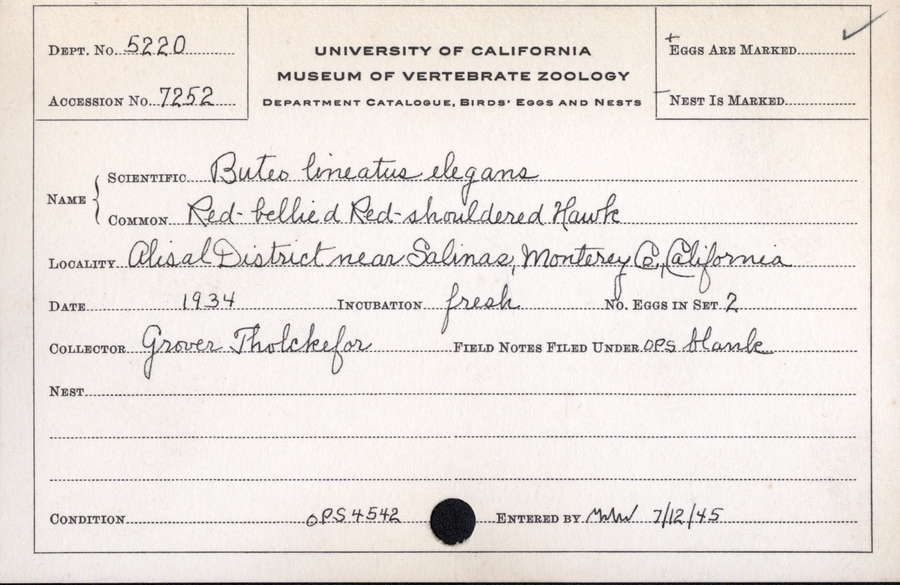 Dept. No. 5220
Accession No. 7252
UNIVERSITY OF CALIFORNIA
MUSEUM OF VERTEBRATE ZOOLOGY
Department Catalogue, Birds' Eggs and Nests
+ Eggs Are Marked ✓
– Nest Is Marked
Name { Scientific Buteo lineatus elegans
Common Red-bellied Red-shouldered Hawk
Locality Alisal District near Salinas, Monterey Co., California
Date 1934 Incubation fresh No. Eggs in Set 2
Collector Grover Tholckefor Field Notes Filed Under OPS blank
Nest
Condition OPS 4542 Entered by 7/12/45